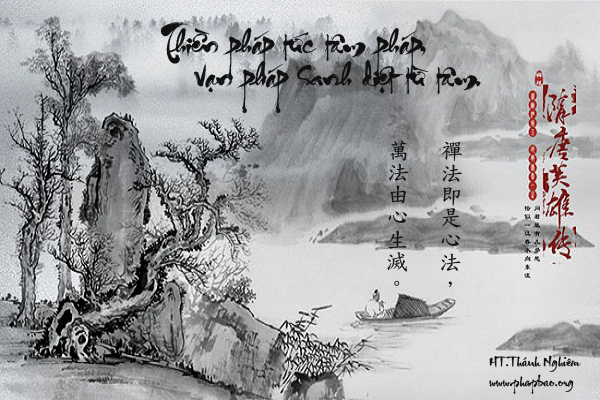 Thiền pháp tức tâm pháp,
vạn pháp sanh diệt từ tâm.
禪法即是心法，
萬法由心生滅。
隋唐英雄传
问君能有几多愁
恰似一江春水向东流
HT.Thánh Nghiêm
www.phapbao.org